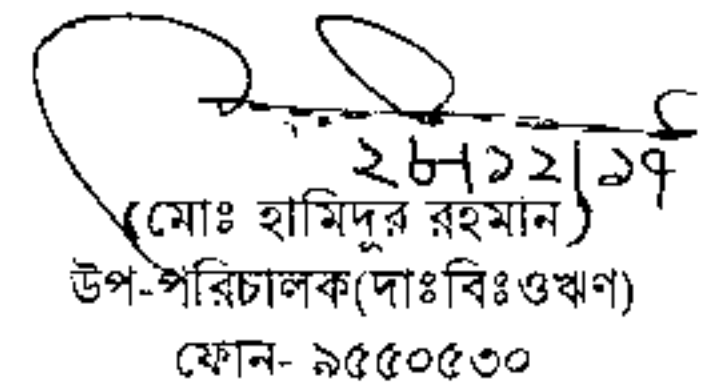 ২৮/১২/১৭
(মোঃ হামিদুর রহমান)
উপ-পরিচালক(দাঃবিঃওঋণ)
ফোন- ৯৫৫০৫৩০